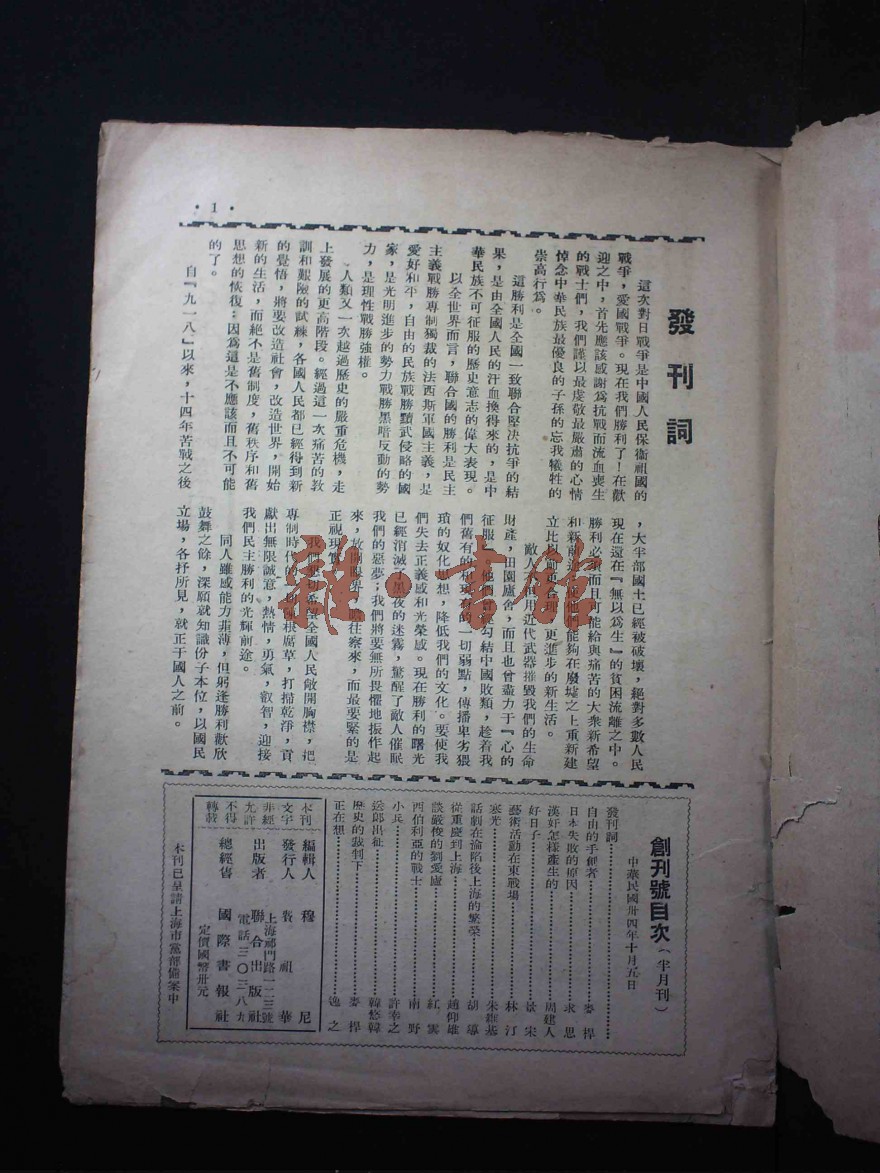 •1•
發刊詞
這次對日戰爭是中國人民保衛祖國的
戰爭，愛國戰爭。現在我們勝利了！在歡
迎之中，首先應該感謝爲抗戰而流血喪生
的戰士們，我們謹以最虔敬最嚴肅的心情
悼念中華民族最優良的子孫的忘我犧牲的
崇高行爲。
這勝利是全國一致聯合堅决抗爭的結
果，是由全國人民的汗血換得來的，是中
華民族不可征服的歷史意志的偉大表現。
以全世界而言，聯合國的勝利是民主
主義戰勝專制獨裁的法西斯軍國主義，是
愛好和平，自由的民族戰勝黷武侵略的國
家，是光明進步的勢力戰勝黑暗反動的勢
力，是理性戰勝強權。
人類又一次越過歷史的嚴重危機，走
上發展的更高階段。經過這一次痛苦的教
訓和艱險的試煉，各國人民都已經得到新
的覺悟，將要改造社會，改造世界，開始
新的生活，而絶不是舊制度，舊秩序和舊
思想的恢復；因爲這是不應該而且不可能
的了。
自『九一八』以來，十四年苦戰之後
，大半部國土已經被破壞，絕對多數人民
現在還在『無以爲生』的貧困流離之中。
勝利必須而且可能給與痛苦的大衆新希望
和新前途，使他們能夠在廢墟之上重新建
立比以前更合理，更進步的新生活。
敵人用近代武器摧毀我們的生命
財產，田園廬舍，而且也曾盡力于『心的
征服』，他們勾結中國敗類，趁着我
們舊有的和現有的一切弱點，傳播卑劣猥
瑣的奴化思想，降低我們的文化。要使我
們失去正義感和光榮感。現在勝利的曙光
已經消滅了黑夜的迷霧，驚醒了敵人催眠
我們的惡夢；我們將要無所畏懼地振作起
來，放開眼界，往察來，而最要緊的是
正視現實。
我們懇切希望全國人民敞開胸襟，把
專制時代的一切陳根腐草，打掃乾淨，貢
獻出無限誠意，熱情，勇氣，叡智，迎接
我們民主勝利的光輝前途。
同人雖感能力菲薄，但躬逢勝利歡欣
鼓舞之餘，深願就知識份子本位，以國民
立場，各抒所見，就正于國人之前。
雜·書館
創刊號目次（半月刊）
中華民國卅四年十月五日
發刊詞
自由的手創者 麥　捍
日本失敗的原因 求　思
漢奸怎樣產生的 周建人
好日子 景　宋
藝術活動在東戰場 林　汀
寒光 朱維基
話劇在淪陷後上海的繁榮 胡　導
從重慶到上海 趙仰雄
談嚴俊的劉愛廬 紅　雲
西伯利亞的戰士 南　野
小兵 許幸之
送郎出征 韓悠韓
歷史的裁判下 麥　捍
正在想 逸　之
本刊文字非經允許不得轉載
編輯人 穆　尼
發行人 裘祖華
出版者 聯合出版社
上海祁門路一二三號
電話三〇三八九
總經售 國際書報社
定價國幣卅元
本刊已呈請上海市黨部備案中